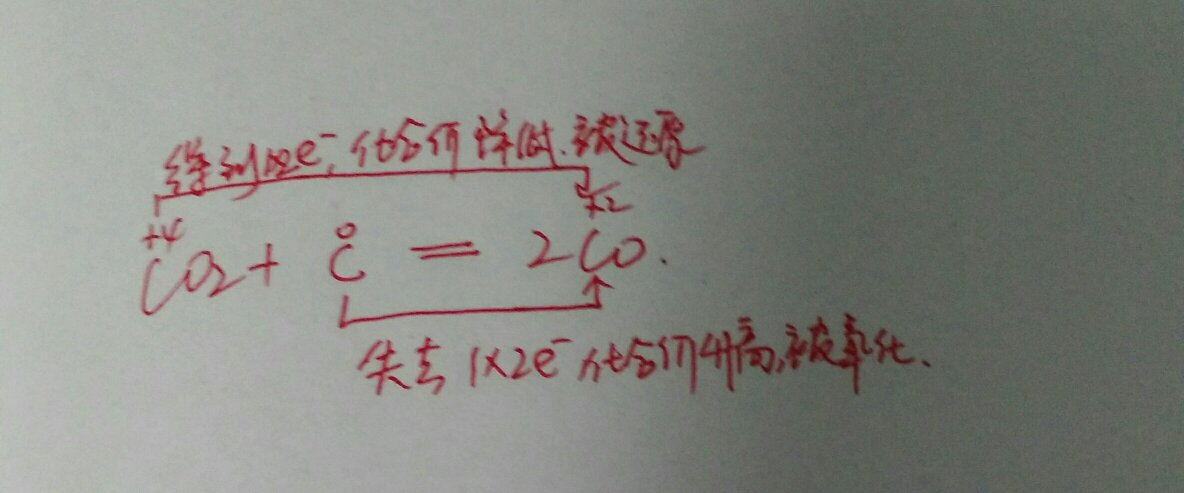 得到1×2e⁻,化合价降低.被还原
+4 +2
CO₂ + C = 2CO.
0
失去 1×2e⁻化合价升高,被氧化.